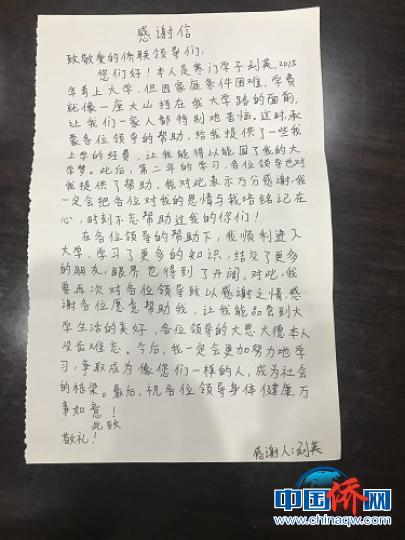 感谢信
致敬爱的侨联领导们:
您们好!本人是寒门学子刘英,2015
年考上大学,但因家庭条件困难,学费
就像一座大山挡在我大学路的面前,
让我们一家人都特别地苦恼。这时,承
蒙各位领导的帮助,给我提供了一些我
上学的经费,让我能得以能圆了我的大
学梦。此后,第二年的学习,各位领导也对
我提供了帮助,我对此表示万分感谢,我
一定会把各位对我的恩情与栽培铭记在
心,时刻不忘帮助过我的你们!
在各位领导的帮助下,我顺利进入
大学,学习了更多的知识,结交了更多
的朋友,眼界也得到了开阔。对此,我
要再次对各位领导致以感谢之情,感
谢各位愿意帮助我,让我能品尝到大
学生活的美好,各位领导的大恩大德本人
没齿难忘。今后,我一定会更加努力地学
习,争取成为像您们一样的人,成为社会
的栋梁。最后,祝各位领导身体健康,万
事如意!
此致
敬礼!
感谢人:刘英
中国侨网
www.chinaqw.com